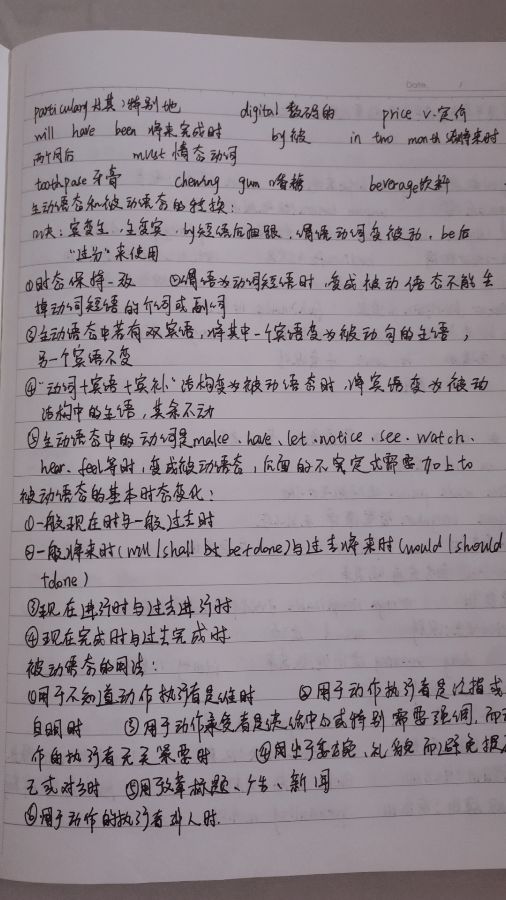 Date.
particulary 尤其;特别地 digital 数码的 price v.定价
will have been 将来完成时 by被 in two month 将来时
两个月后 must 情态动词
toothpase 牙膏 chewing gum n香糖 beverage饮料
主动语态和被动语态的转换:
口决:宾变主,主变宾,by短语后面跟,谓语动词变被动,be后
"过分"来使用
①时态保持一致 ②谓语为动词短语时,变成被动语态不能丢
掉动词短语的介词或副词
③主动语态中若有双宾语,将其中一个宾语变为被动句的主语,
另一个宾语不变
④"动词+宾语+宾补"结构变为被动语态时,将宾语变为被动
结构中的主语,其余不动
⑤主动语态中的动词是make、have、let、notice、see、watch、
hear、feel等时,变成被动语态,后面的不定式需要加上to
被动语态的基本时态变化:
①一般现在时与一般过去时
②一般将来时(will/shall be+done)与过去将来时(would/should
+done)
③现在进行时与过去进行时
④现在完成时与过去完成时
被动语态的用法:
①用于不知道动作执行者是谁时 ②用于动作执行者是泛指或
自明时 ③用于动作承受者是谈话中心或特别需要强调,而动
作的执行者无关紧要时 ④用出于委婉,礼貌而避免提及
己或对方时 ⑤用于文章标题、广告、新闻
⑥用于动作的执行者非人时.